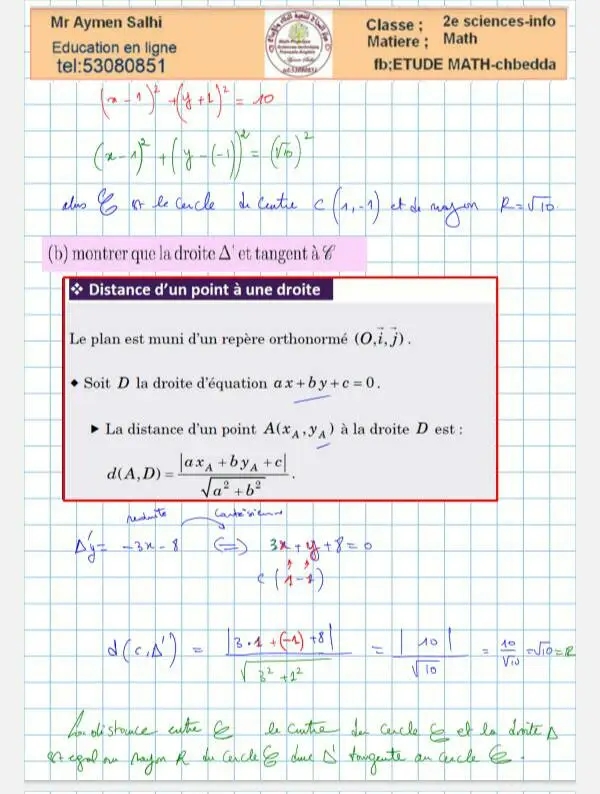 Mr Aymen Salhi
Education en ligne
tel:53080851
Classe ; 2e sciences-info
Matiere ; Math
fb;ETUDE MATH-chbedda
(x - 1)² + (y + 1)² = 10
(x - 1)² + (y - (-1))² = (√10)²
alors C est le cercle de centre C (1, -1) et de rayon R = √10
(b) montrer que la droite Δ' et tangent à C
❖ Distance d'un point à une droite
Le plan est muni d'un repère orthonormé (O,i⃗,j⃗).
◆ Soit D la droite d'équation ax + by + c = 0.
▶ La distance d'un point A(x_A, y_A) à la droite D est :
d(A,D) = |ax_A + by_A + c| / √(a² + b²).
réduite cartésienne
Δ' y = -3x - 8 ⇔ 3x + y + 8 = 0
C (1 -1)
d(C,Δ') = |3·1 + (-1) + 8| / √(3² + 1²) = |10| / √10 = 10/√10 = √10 = R
La distance entre C le centre du cercle C et la droite Δ
est egal au rayon R du cercle C donc Δ' tangente au cercle C.